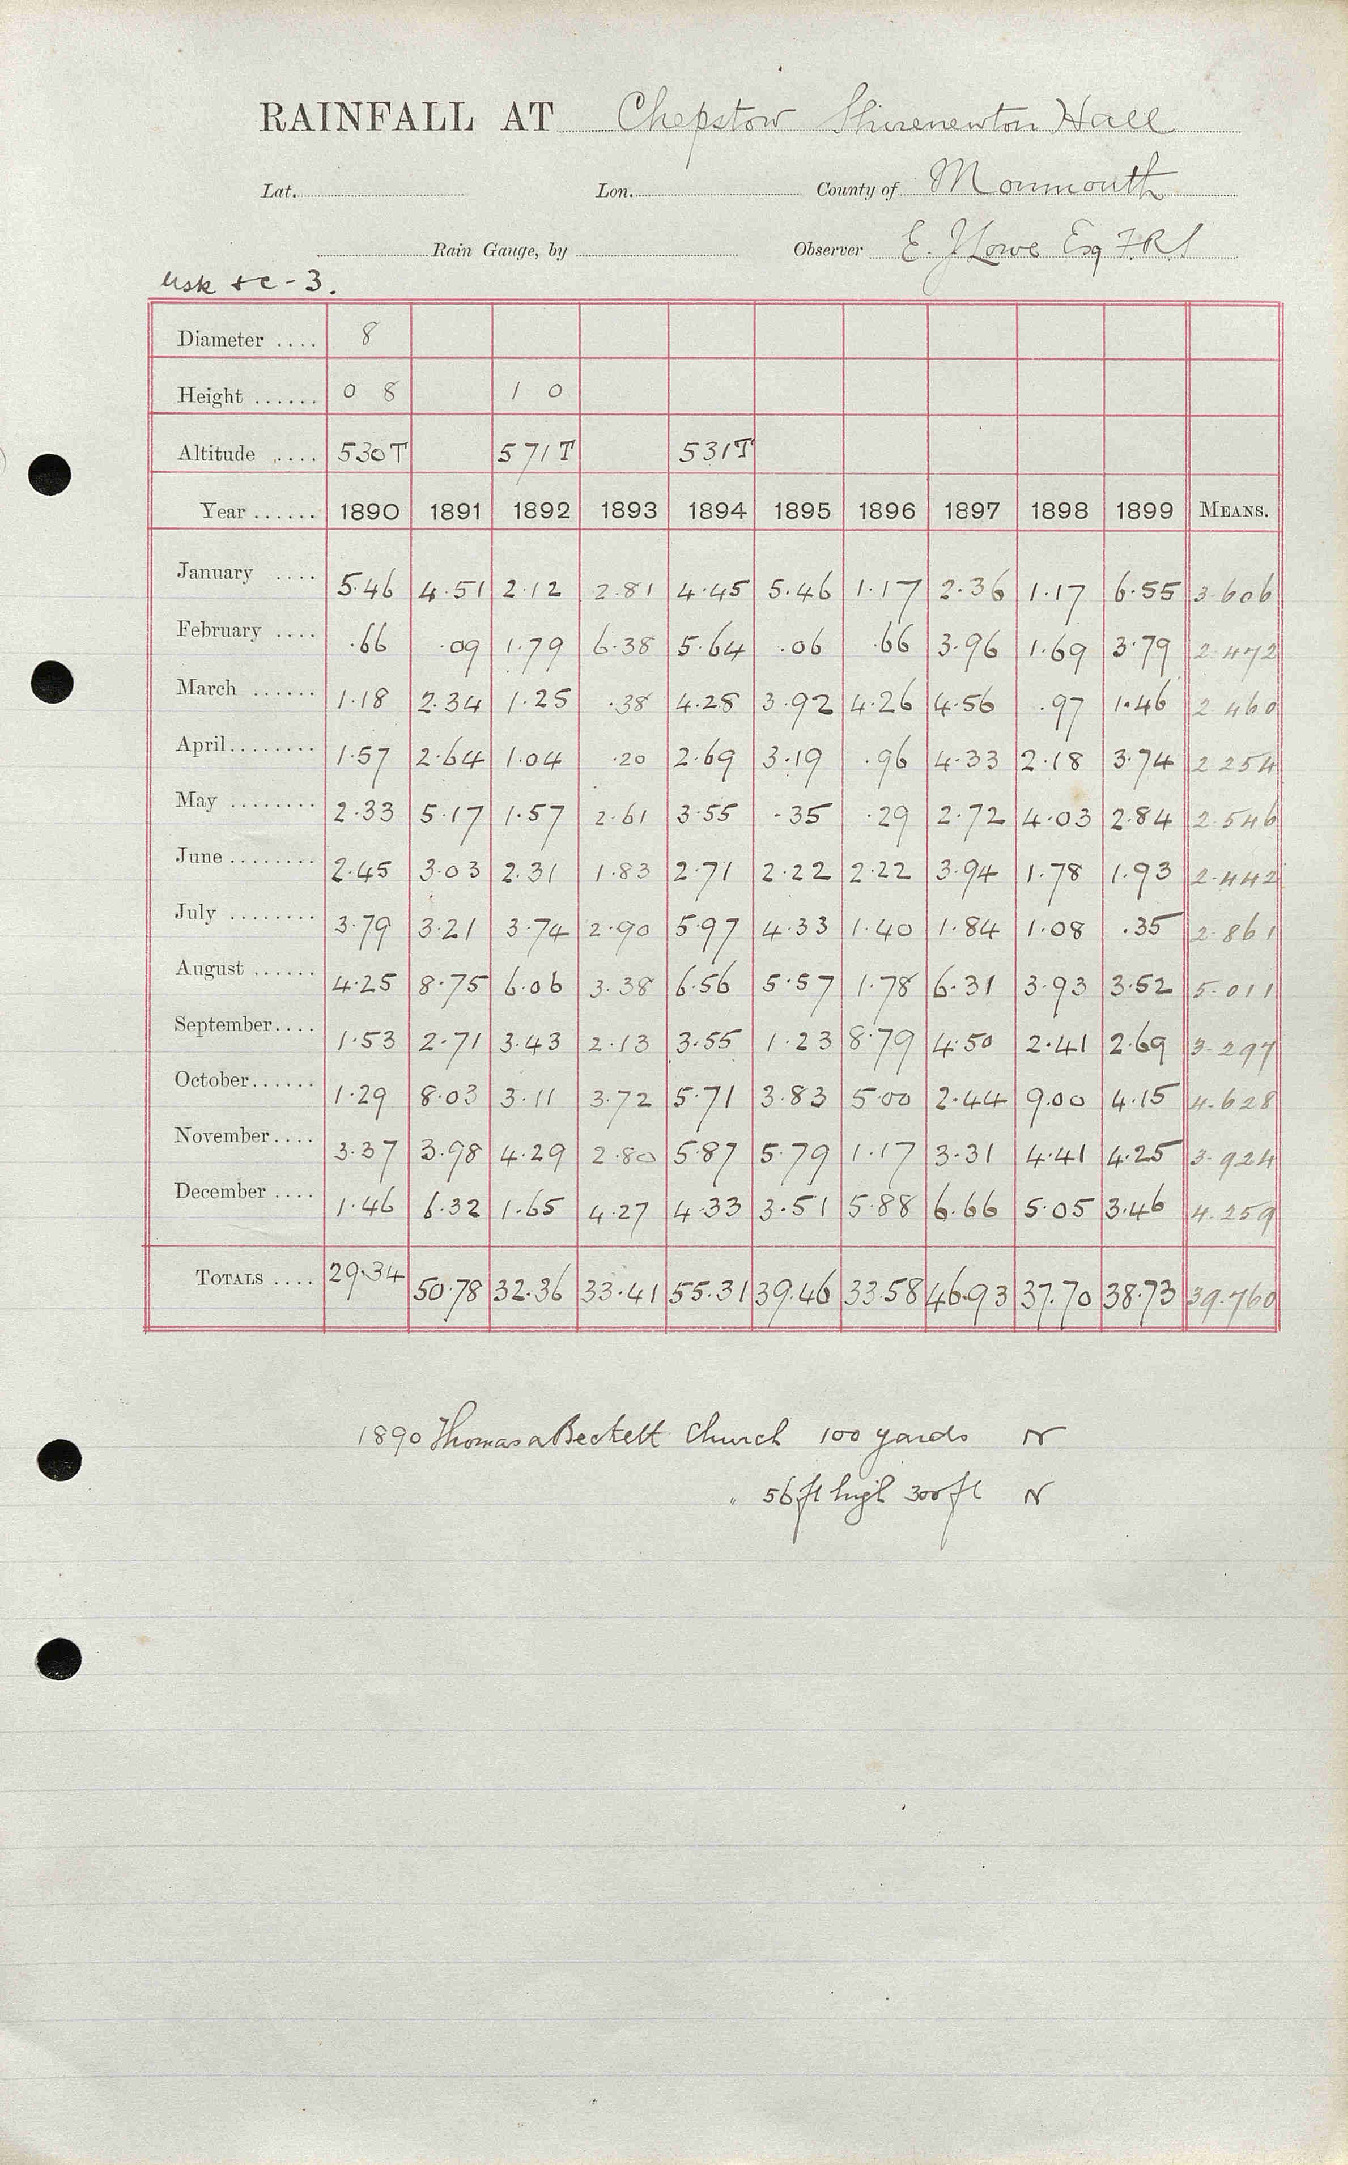 RAINFALL AT Chepstow Shirenewton Hall
Lat. Lon. County of Monmouth
Rain Gauge, by Observer E. J Lowe Esq F.R.S
Usk + c - 3.
Diameter .... 8
Height ...... 0 8 1 0
Altitude .... 530T 571T 531T
Year ...... 1890 1891 1892 1893 1894 1895 1896 1897 1898 1899 MEANS.
January .... 5.46 4.51 2.12 2.81 4.45 5.46 1.17 2.36 1.17 6.55 3.606
February .... .66 .09 1.79 6.38 5.64 .06 .66 3.96 1.69 3.79 2.472
March ...... 1.18 2.34 1.25 .38 4.28 3.92 4.26 4.56 .97 1.46 2.460
April........ 1.57 2.64 1.04 .20 2.69 3.19 .96 4.33 2.18 3.74 2.254
May ........ 2.33 5.17 1.57 2.61 3.55 .35 .29 2.72 4.03 2.84 2.546
June ........ 2.45 3.03 2.31 1.83 2.71 2.22 2.22 3.94 1.78 1.93 2.442
July ........ 3.79 3.21 3.74 2.90 5.97 4.33 1.40 1.84 1.08 .35 2.861
August ...... 4.25 8.75 6.06 3.38 6.56 5.57 1.78 6.31 3.93 3.52 5.011
September.... 1.53 2.71 3.43 2.13 3.55 1.23 8.79 4.50 2.41 2.69 3.297
October...... 1.29 8.03 3.11 3.72 5.71 3.83 5.00 2.44 9.00 4.15 4.628
November.... 3.37 3.98 4.29 2.80 5.87 5.79 1.17 3.31 4.41 4.25 3.924
December .... 1.46 6.32 1.65 4.27 4.33 3.51 5.88 6.66 5.05 3.46 4.259
TOTALS .... 29.34 50.78 32.36 33.41 55.31 39.46 33.58 46.93 37.70 38.73 39.760
1890 Thomas a Beckett Church 100 yards N
" 56 ft high 300 ft N